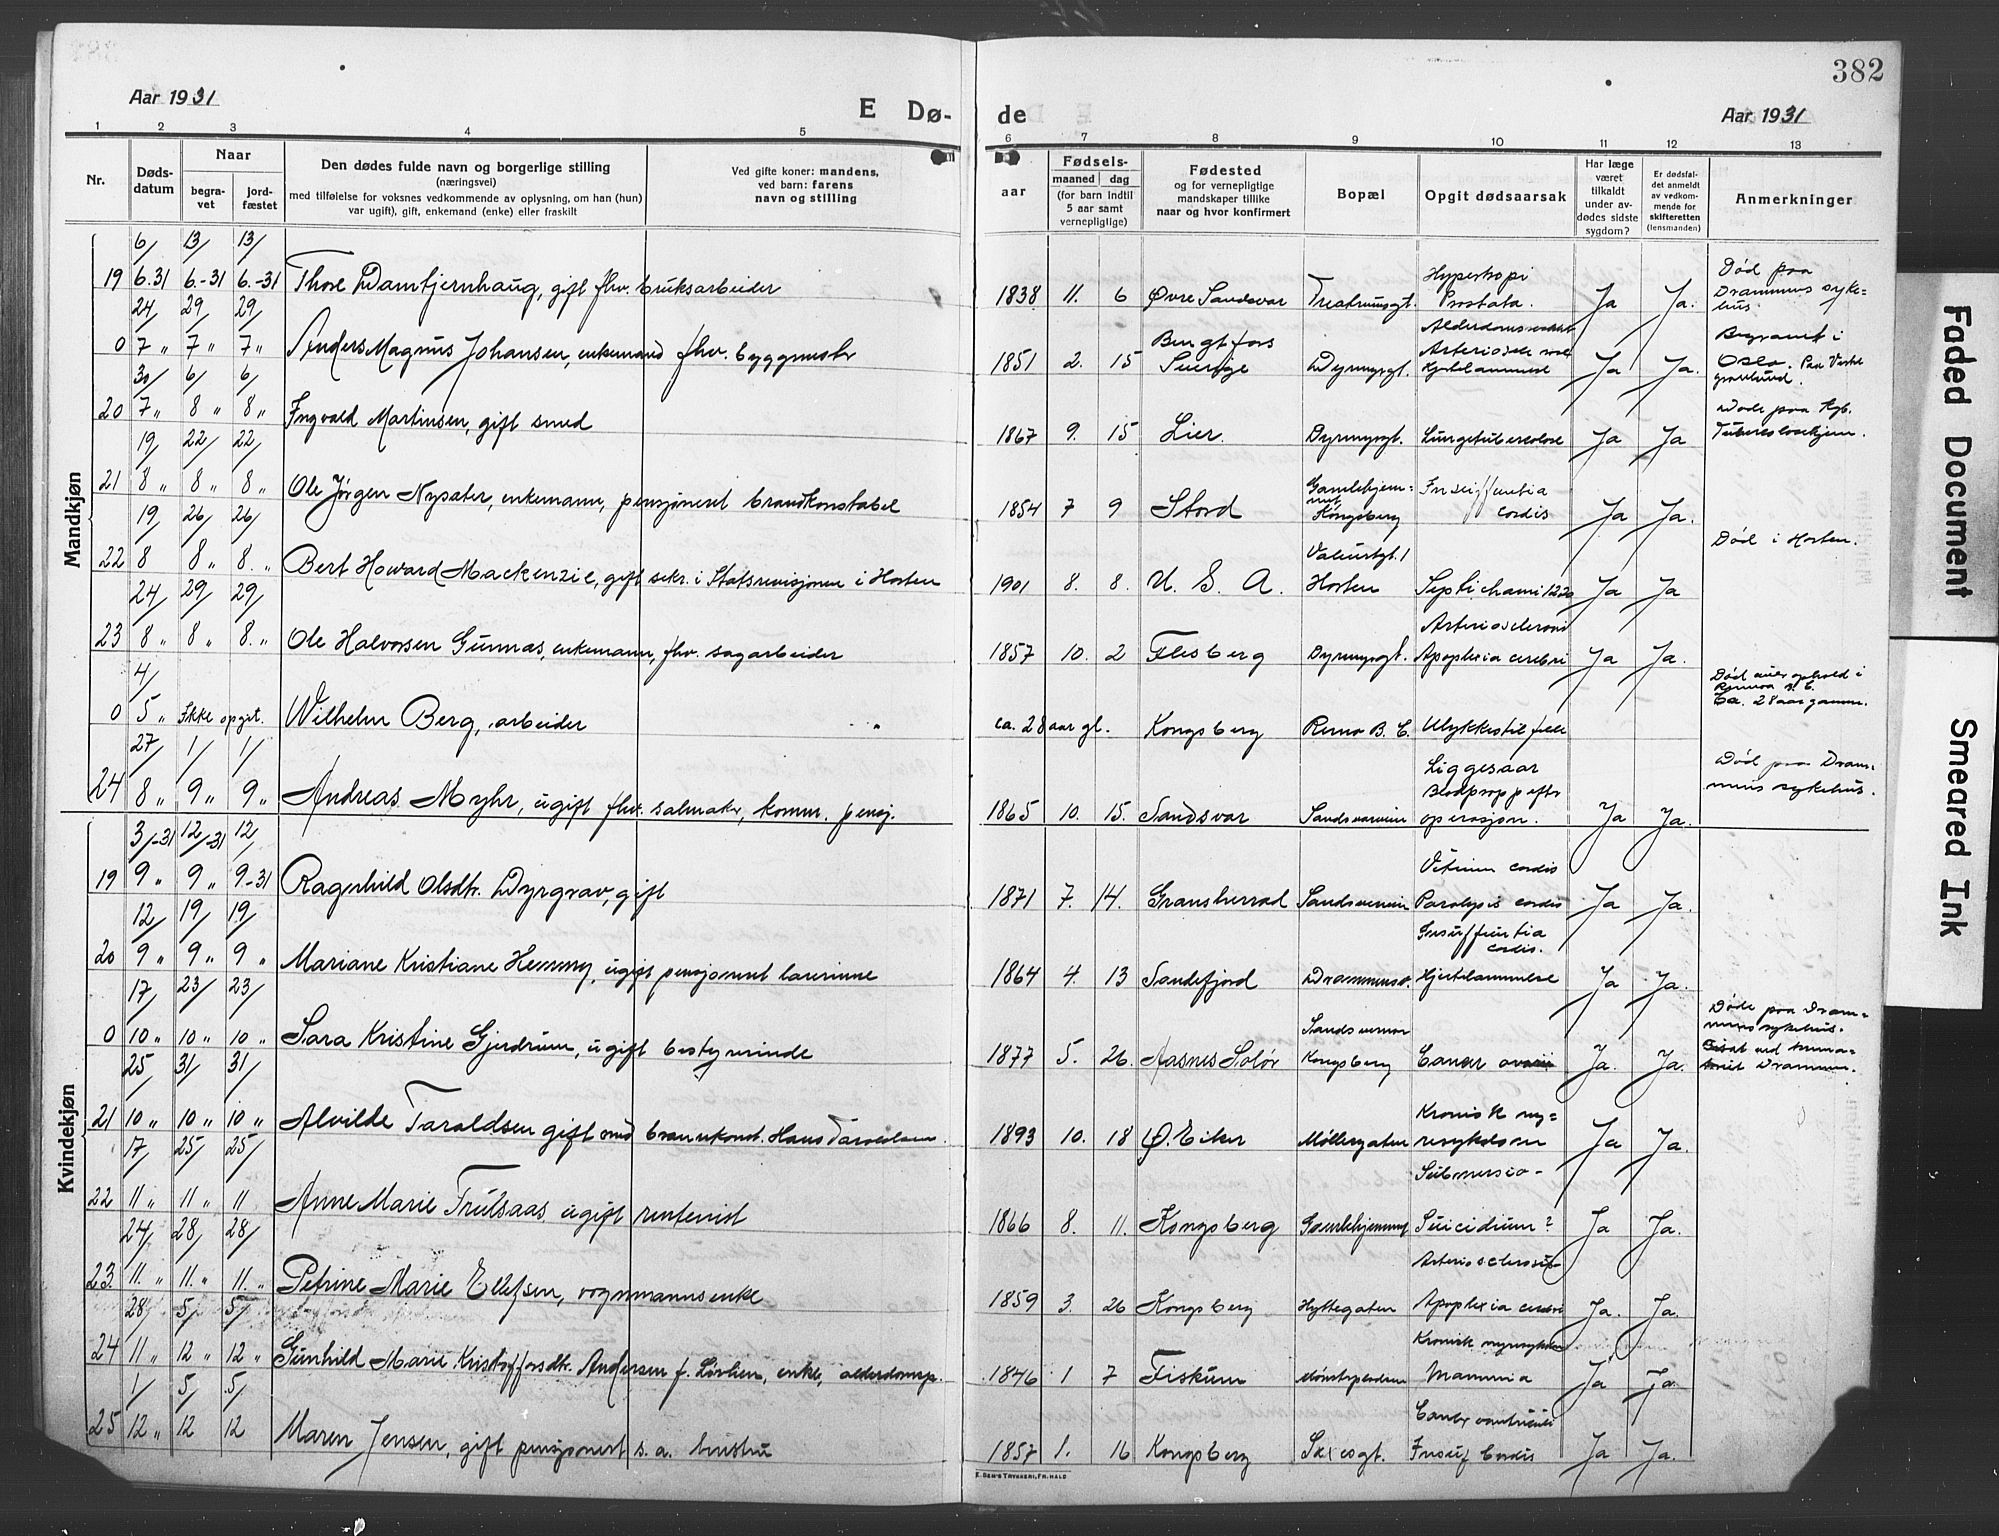 382
Aar 1931
E Dø-
de
Aar 1931
1 2 3 4 5 6 7 8 9 10 11 12 13
Nr.
Døds-
datum
Naar
begra-
vet
jord-
fæstet
Den dødes fulde navn og borgerlige stilling
(næringsvei)
med tilføielse for voksnes vedkommende av oplysning, om han (hun)
var ugift), gift, enkemand (enke) eller fraskilt
Ved gifte koner: mandens,
ved barn: farens
navn og stilling
Fødsels-
aar
maaned dag
(for barn indtil
5 aar samt
vernepligtige)
Fødested
og for vernepligtige
mandskaper tillike
naar og hvor konfirmert
Bopæl
Opgit dødsaarsak
Har læge
været
tilkaldt
under av-
dødes sidste
sygdom?
Er dødsfal-
det anmeldt
av vedkom-
mende for
skifteretten
(lensmanden)
Anmerkninger
Mandkjøn
6/ 13/ 13/
Hypertropi
Død paa
19 6.31 6.-31 6.-31 Thore Damtjernhaug, gift fhv. bruksarbeider
1838 11. 6 Øvre Sandsvar Prostata. Ja Ja.
Drammens syke-
hus
24/ 29/ 29/
Bengtfors
Begravet i
0 7 " 7 " 7 " Anders Magnus Johansen, enkemand fhv. byggmestr
1851 2. 15 Sverige Dyrmyrgt. Hjertelammelse Ja Ja.
Oslo. Paa Vestre
gravlund.
30/ 6/ 6/
20 7 " 8 " 8 " Ingvald Martinsen, gift smed
Døde paa Kgb.
1867 9. 15 Lier. Dyrmyrgt. Lungetuberculose Ja Ja
Tuberculosehjem.
19/ 22/ 22/
21 8 " 8 " 8 " Ole Jørgen Nysater, enkemann, pensjoneret brandkonstabel
Gamlehjem-
met
Insufficientia
1854 7 9 Stord Kongsberg cordis Ja Ja.
19/ 26/ 26/
22 8 8 " 8. " Bert Howard Mackenzie, gift sekr. i Statsrevisjonen i Horten
Død i Horten.
1901 8. 8. U. S. A. Horten Ja Ja
24/ 29/ 29/
23 8 " 8 " 8. " Ole Halvorsen Gunnas, enkemann, fhv. sagarbeider
1857 10. 2 Flesberg Dyrmyrgt. Apoplexia cerebri Ja Ja.
4/
0 5 " Ikke opgit. Wilhelm Berg, arbeider "
Død under ophold i
B. C.
Ca. 28 aar gammel.
ca. 28 aar gl. Kongsberg B. C. Ulykkestilfelle
27/ 1/ 1/
24 8 " 9 " 9 " Andreas Myhr, ugift fhv. salmakr, komm. pensj.
Liggesaar
Blodpropp efter
Død paa Dram-
mens sykehus.
1865 10. 15. Sandsvar Sandsverveien operasjon. Ja Ja.
Kvindekjøn
3/-31 12/-31 12/
19 9 " 9 " 9-31 Ragnhild Olsdtr. Dyrgrav, gift
Vitium cordis
1871 7. 14. Gransherred Sandsverveien Paralysis cordis Ja Ja.
12/ 19/ 19/
20 9 " 9 " 9 " Mariane Kristiane Hemmy, ugift pensjonert lærerinne
Insufficientia
cordis.
1864 4. 13 Sandefjord Drammensv. Hjertelammelse Ja Ja.
17/ 23/ 23/
0 10 " 10 " 10 " Sara Kristine Gjerdrum, ugift bestyrerinde
Døde paa Dram-
mens sykehus.
1877 5. 26. Aasnes Solør Kongsberg Cancer ovarii Ja. Ja.
25/ 31/ 31/
21 10 " 10 " 10 " Alvilde Taraldsen gift med brannkonst. Hans Taraldsen.
Kronisk ny-
1893 10. 18 Ø. Eiker Møllergaten resykdom Ja Ja.
17/ 25/ 25/
22 11 " 11 " 11 Anne Marie Trulsaas ugift rentenist
Submersio-
1866 8. 11. Kongsberg Gamlehjemmet Suicidium? Ja Ja.
24/ 28/ 28/
23. 11. " 11. " 11. " Petrine Marie Ellefsen, vognmannsenke
Arteriosclerosis
1859 3. 26 Kongsberg Hyttegaten Apoplexia cerebri Ja. Ja.
28/ 5/ 5/
24 11 " 12 " 12 " Gunhild Marie Kristoffersdtr. Andersen f. Løvlien, enke, alderdomsp.
1846 1 7 Fiskum Ja Ja.
1/ 5/ 5/
25 12 " 12 12 Maren Jensen, gift pensjonert s. a. hustru
1857 1. 16 Kongsberg Insuf Cordis Ja Ja.
E. SEM'S TRYKKERI, FR.HALD
Faded Document
Smeared Ink